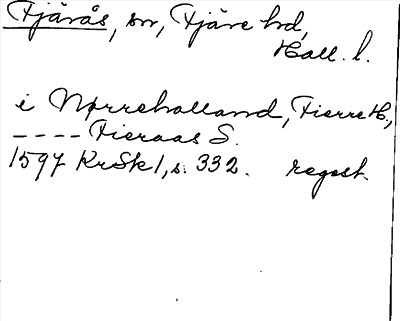 Fjärås, sn, Fjäre hd,
Hall. l.
i Nørrehalland, Fierre H.,
---- Fieraas S.
1597 KrSk 1, s. 332. regest.